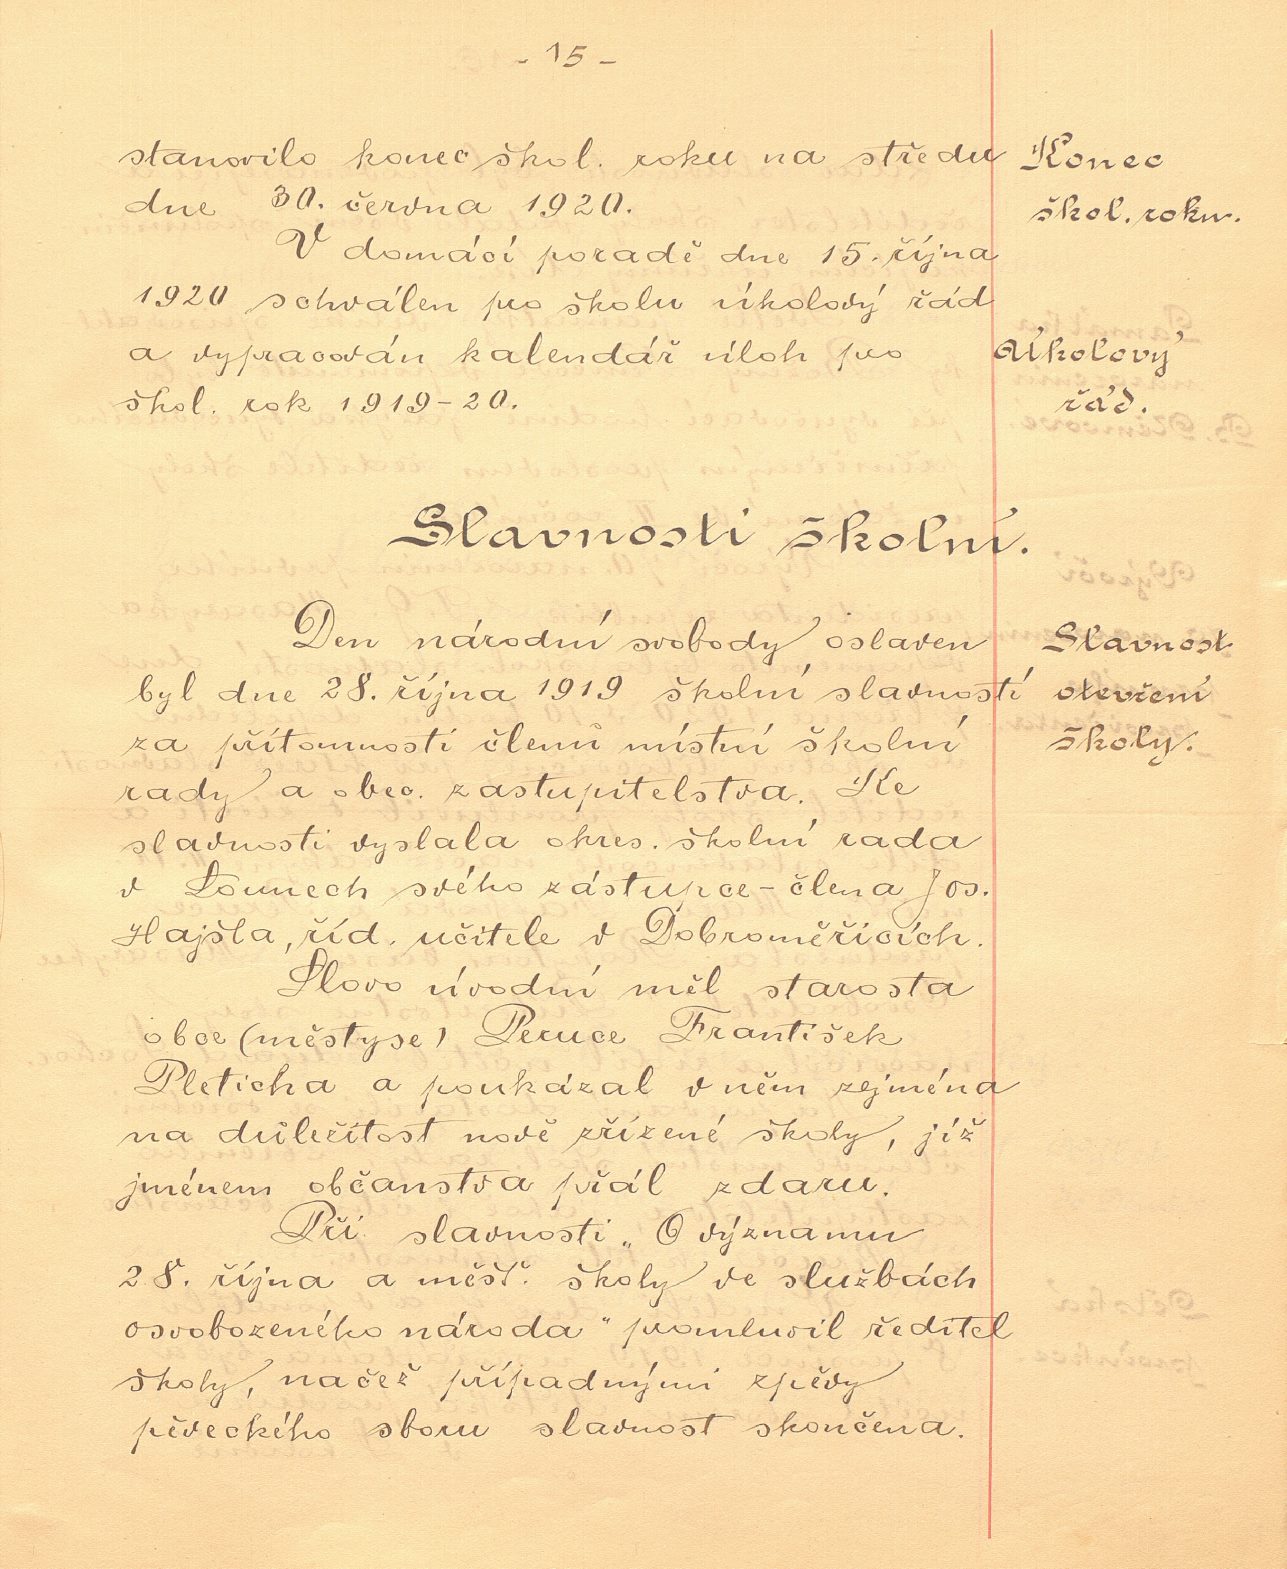 - 15 -
stanovilo konec škol. roku na středu
Konec
dne 30. června 1920.
škol. roku.
V domácí poradě dne 15. října
1920 schválen pro školu úkolový řád
a vypracován kalendář úloh pro
Úkolový
škol. rok 1919-20.
řád.
Slavnosti školní.
Den národní svobody oslaven
Slavnost
byl dne 28. října 1919 školní slavností
otevření
za přítomnosti členů místní školní
školy.
rady a obec. zastupitelstva. Ke
slavnosti vyslala okres. školní rada
v Lounech svého zástupce - člena Jos.
Hajšla, říd. učitele v Dobroměřicích.
Slovo úvodní měl starosta
obce (městyse) Peruce František
Pleticha a poukázal v něm zejména
na důležitost nově zřízené školy, jíž
jménem občanstva přál zdaru.
Při slavnosti „O významu
28. října a měšť. školy ve službách
osvobozeného národa" promluvil ředitel
školy, načež případnými zpěvy
pěveckého sboru slavnost skončena.